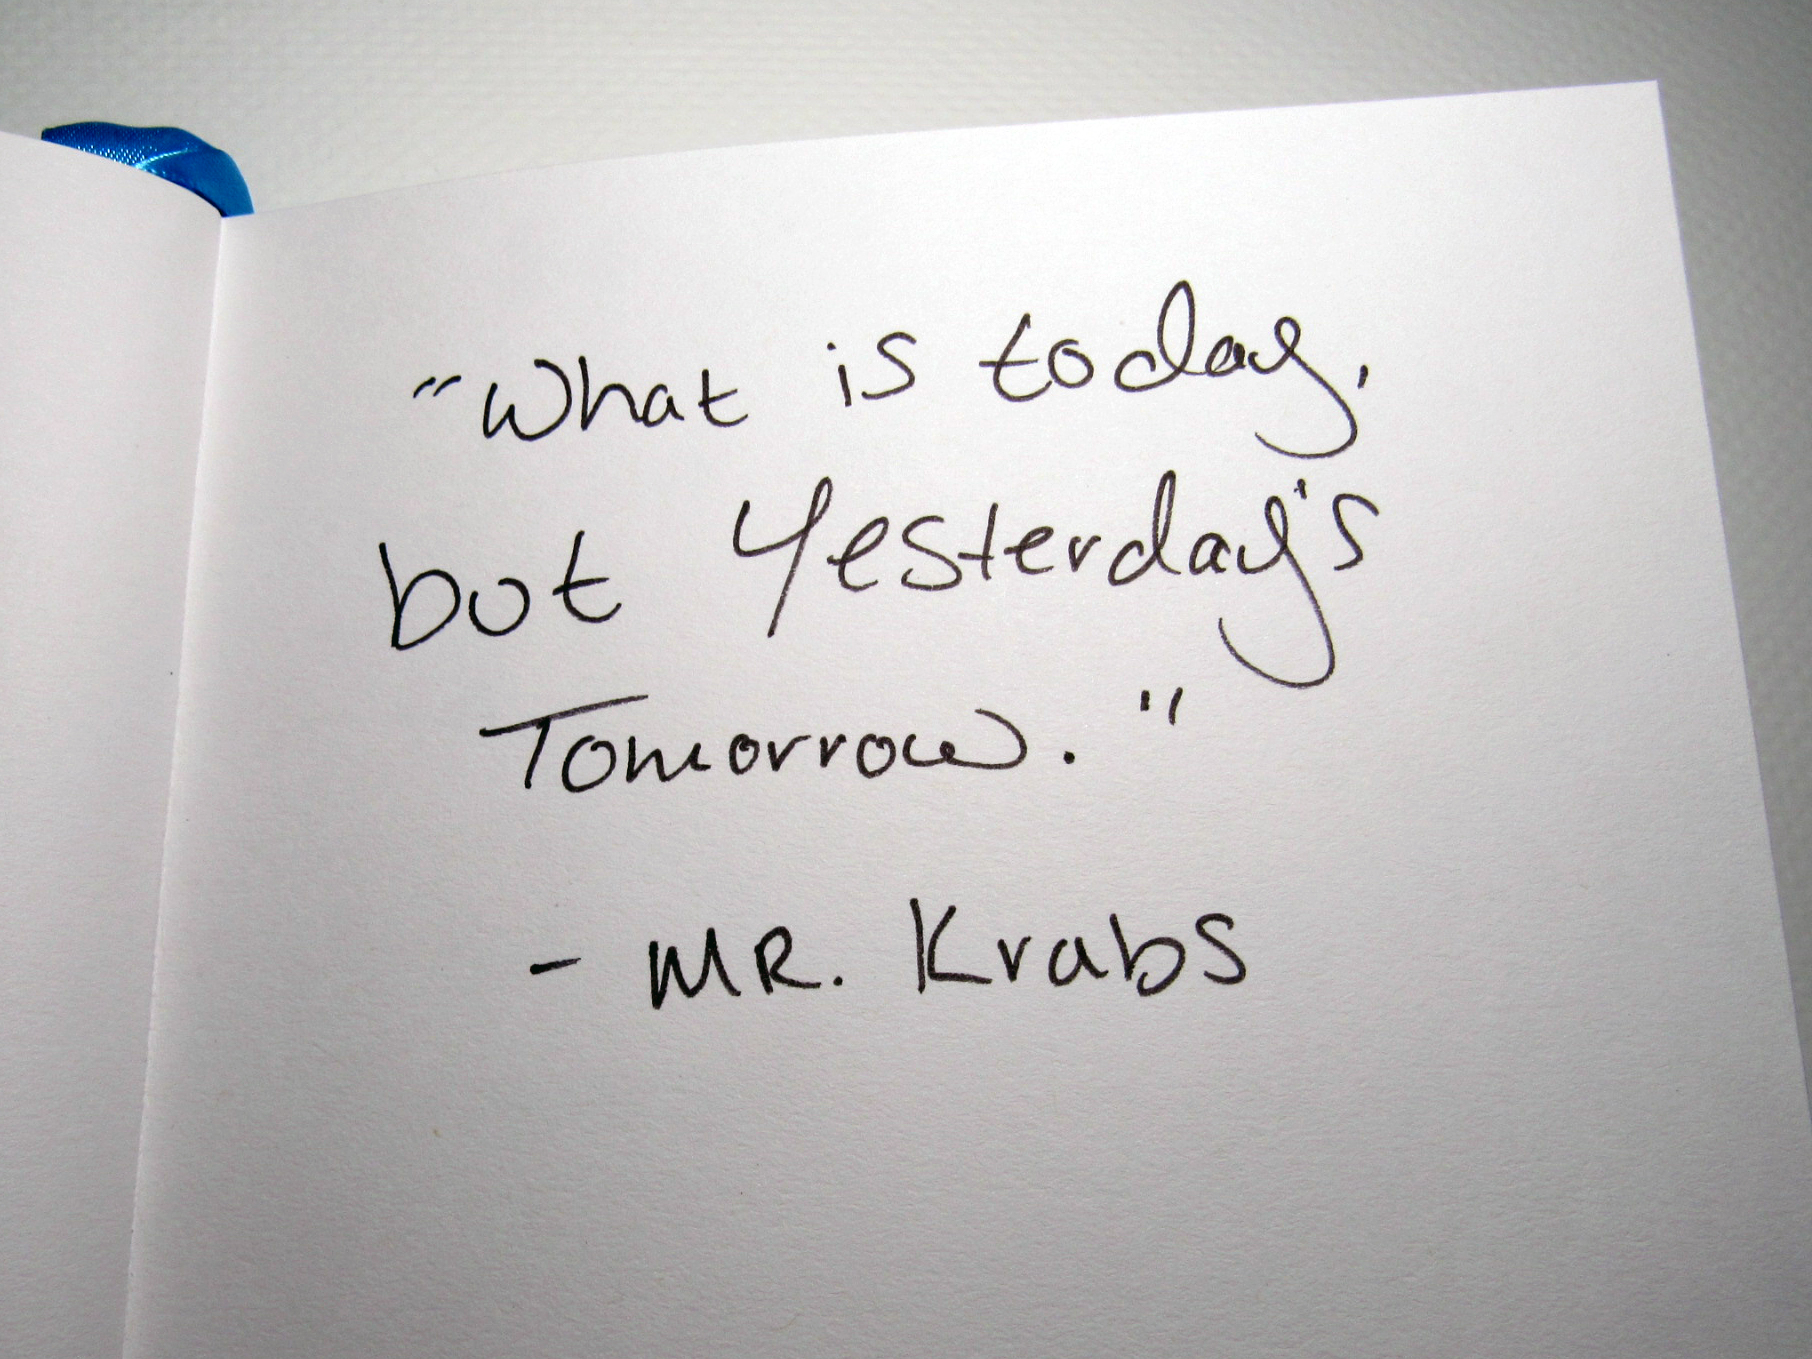 "What is today,
but Yesterday's
Tomorrow."
- MR. Krabs